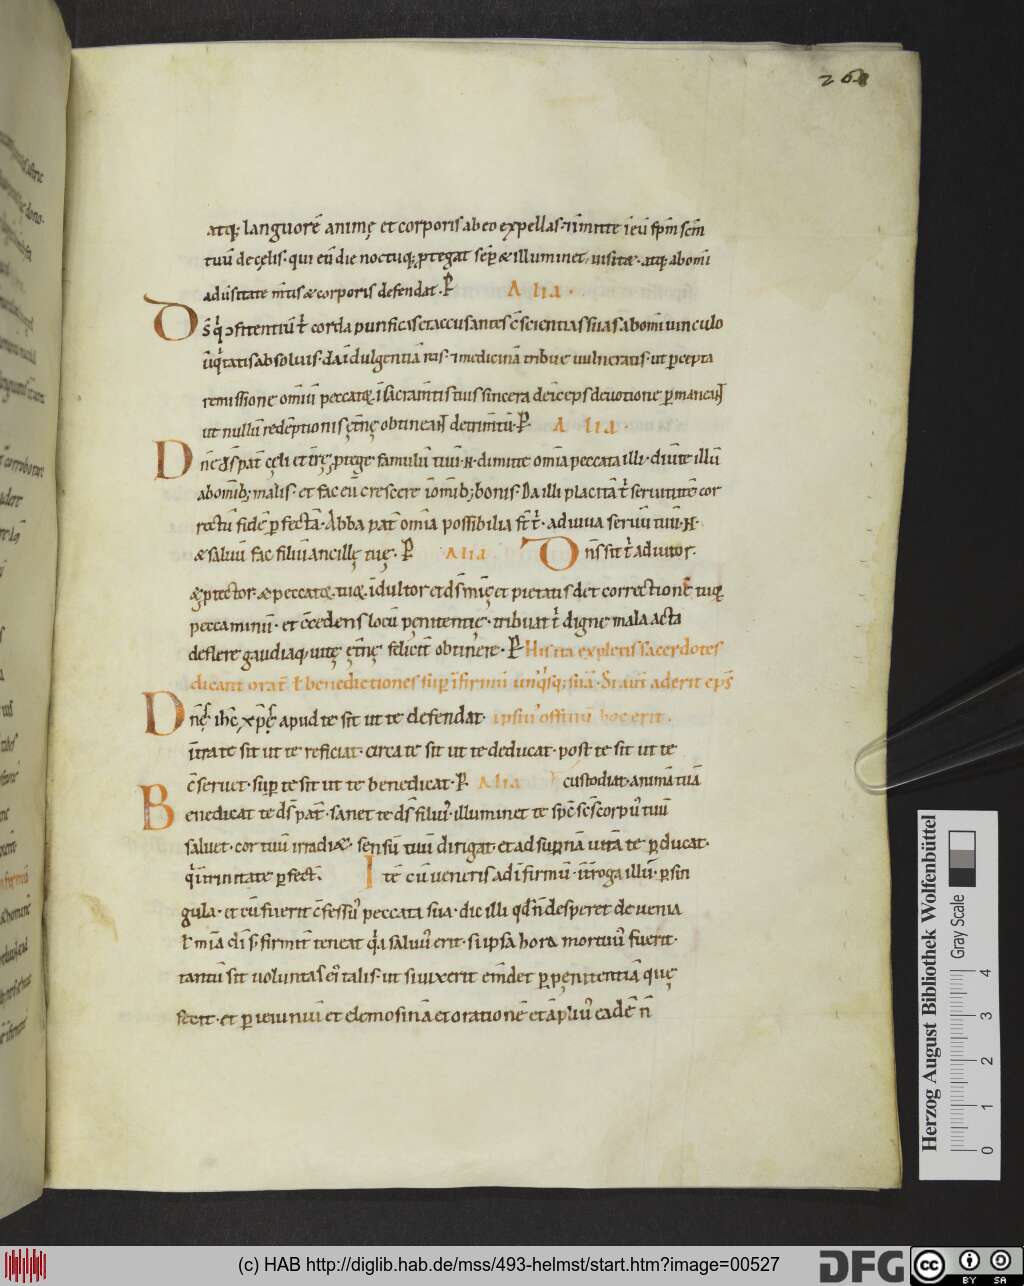 261
atq; languorē animę et corporis ab eo expellas· īmitte ieū spm̄ scm̄
tuū de cęlis· qui eū die noctuq; ꝓtegat sēp & illuminet, uisitæ· atq; ab omī
aduersitate m̄tis & corporis defendat· P̄ Alia·
D̄s q ꝯfitentiū t̄ corda purificas et accusantes cscientias suas ab omī uinculo
iniqtatis absoluis· da īdulgentiā reis· ⁊ medicinā tribue uulneratis· ut ꝑcepta
remissione omiū peccatoꝝ· ī sacram̄tis tuis sincera deīceps deuotione ꝑmaneant
ut nullū redēptionis ęt̄nę obtineant detrim̄tū· P̄ Alia·
Dn̄e d̄s pat̄ cęli et t̄rę, ꝓtege famulū tuū ·N· dimitte om̄ia peccata illi· diuite illū
ab omīb; malis· et fac eū crescere ī omīb; bonis· Da illi placitā t̄ seruitutē cor
rectū fidē ꝑfectā· Abba pat̄ om̄ia possibilia st̄ t̄· adiuua seruū tuū ·N·
& saluū fac filiū ancillę tuę· P̄ Alia Dn̄s sit t̄ adiutor·
& ꝓtector· & peccatoꝝ tuoꝝ īdultor et d̄s mię et pietatis det correctionē tuoꝝ
peccaminū· et ccedens locū penitentię· tribuat t̄ digne mala acta
deflere gaudiaq; uitę ęt̄nę felicit̄ obtinere· P̄ His ita expletis sacerdotes
dicant orat̄ t̄ benedictiones sup īfirmū unqisq; suā· Si aū aderit ep̄s
Dn̄s ih̄c xp̄c apud te sit ut te defendat· ipsius offitiū hoc erit·
īt̄ra te sit ut te reficiat· circa te sit ut te deducat· post te sit ut te
cseruet· sup te sit ut te benedicat· P̄ Alia custodiat· animā tuā
Benedicat te d̄s pat̄· sanet te d̄s filius· illuminet te sp̄c sc̄s corpus tuū
saluet· cor tuū irradi&· sensū tuū dirigat· et ad supnā uitā te ꝑducat·
q in trinitate ꝑfect̄· Ite cū ueneris ad īfirmū· īt̄roga illū· ꝑ sin
gula· et cū fuerit cfessus peccata sua· dic illi qd n̄ desperet de uenia
t̄ mīa dī s; firmit̄ teneat qa saluus erit· si ipsa hora mortuus fuerit·
tantū sit uoluntas ei talis· ut si uixerit emdet ꝑ pęnitentiā quę
fecit· et ꝑ ieiuniū et elemosinā et orationē et āplius eadē n̄
Herzog August Bibliothek Wolfenbüttel
Gray Scale
0 1 2 3 4
(c) HAB http://diglib.hab.de/mss/493-helmst/start.htm?image=00527
DFG
cc BY SA